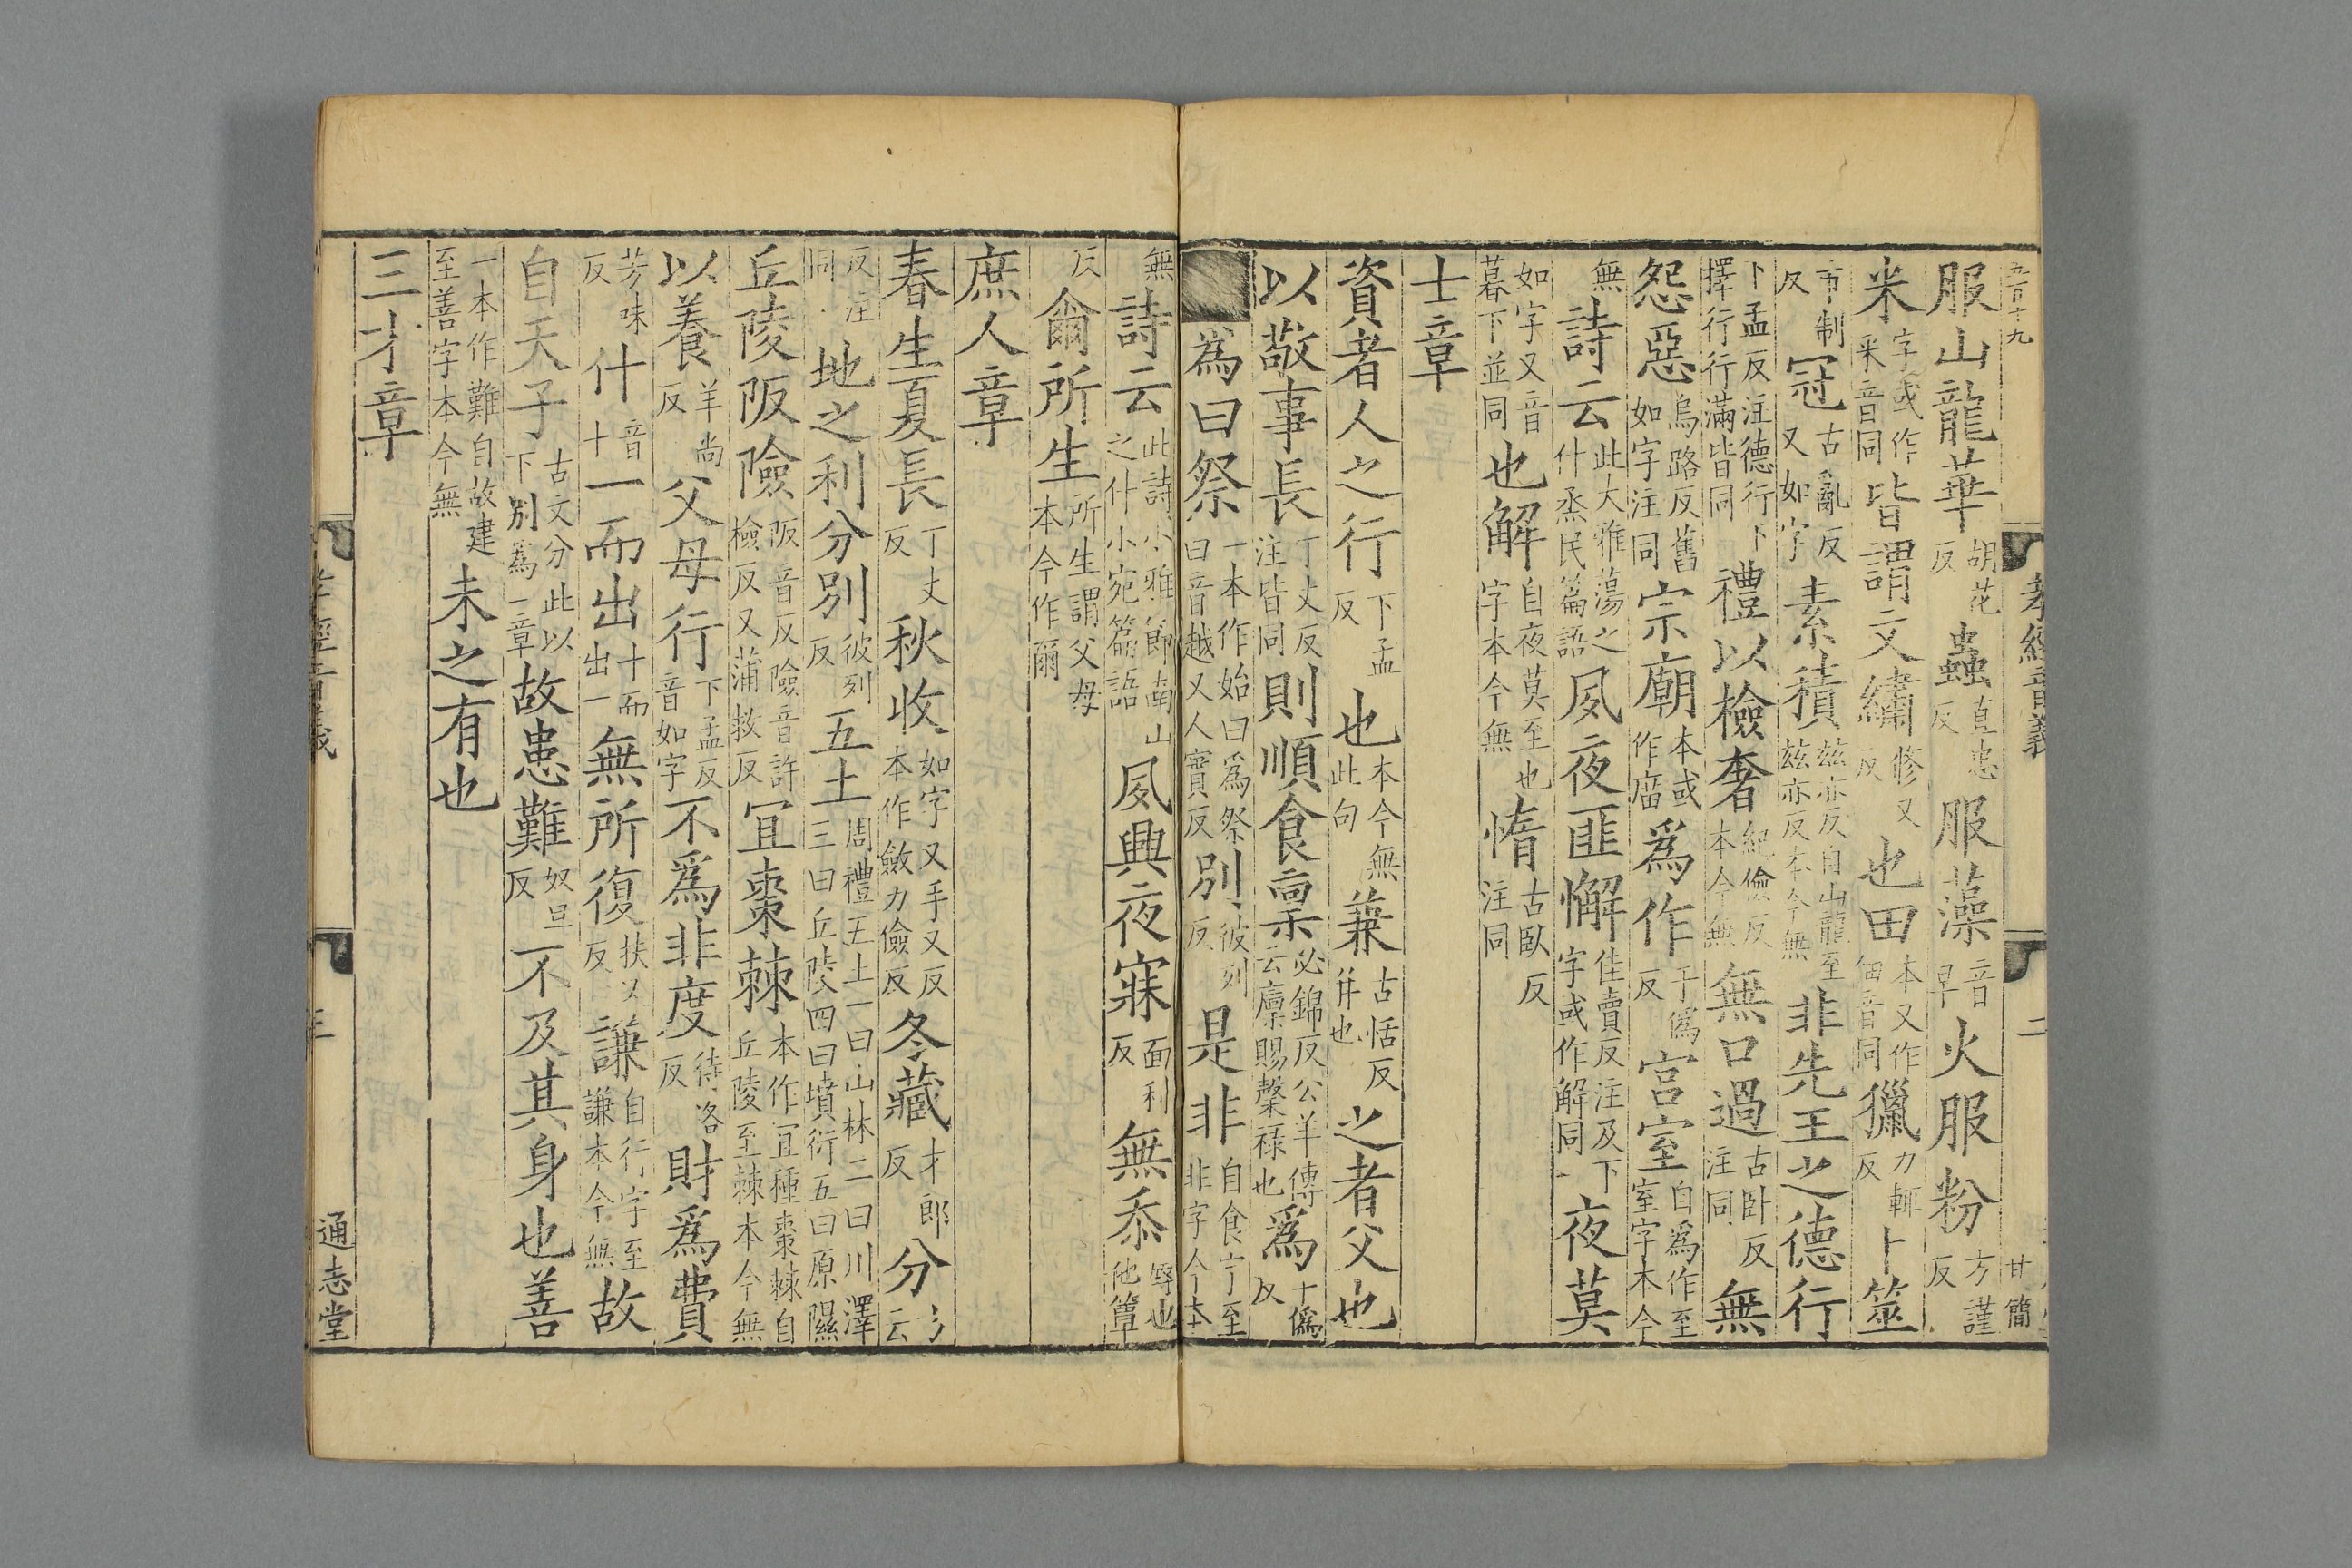 五百十九
孝經音義
二
甘簡
服山龍華胡花反蟲直忠反服藻音早火服粉方謹反
米字或作䋛音同皆謂文繡修又反也田本又作佃音同獵力輒反卜筮
市制反冠古亂反又如字素積茲亦反自山龍至茲亦反本今無非先王之德行
下孟反注德行下擇行行滿皆同禮以檢奢紀儉反本今無無口過古卧反注同無
怨惡烏路反舊如字注同宗廟本或作庿爲作于僞反宮室自爲作至室字本今
無詩云此大雅蕩之什烝民篇語夙夜匪懈佳賣反注及下字或作解同夜莫
如字又音暮下並同也解自夜莫至也字本今無惰古臥反注同
士章
資者人之行下孟反也本今無此句蒹古恬反并也之者父也
以敬事長丁丈反注皆同則順食禀必錦反公羊傳云廩賜穀祿也爲于僞反
爲曰祭一本作始曰爲祭曰音越又人實反別彼列反是非自食亠至非字今本
無詩云此詩小雅節南山之什小宛篇語夙興夜寐面利反無忝他簟反
尒所生所生謂父母本今作爾
庶人章
春生夏長丁丈反秋收如字又手又反本作斂力儉反冬藏才郎反分云
反注同地之利分別彼列反五土周禮五土一曰山林二曰川澤三曰丘陵四曰墳衍五曰原隰
丘陵阪險阪音反險音許檢反又蒲救反宜棗棘本作宜種棗棘自丘陵至棘本今無
以養羊尚反父母行下孟反音如字不爲非度待洛反財爲費
芳味反什音十一而出十而出一無所復扶又反謙自行字至謙本今無故
自天子古文分此以下別爲一章故患難奴旦反不及其身也善
一本作難自故建至善字本今無未之有也
三才章
孝經音義
三
通志堂